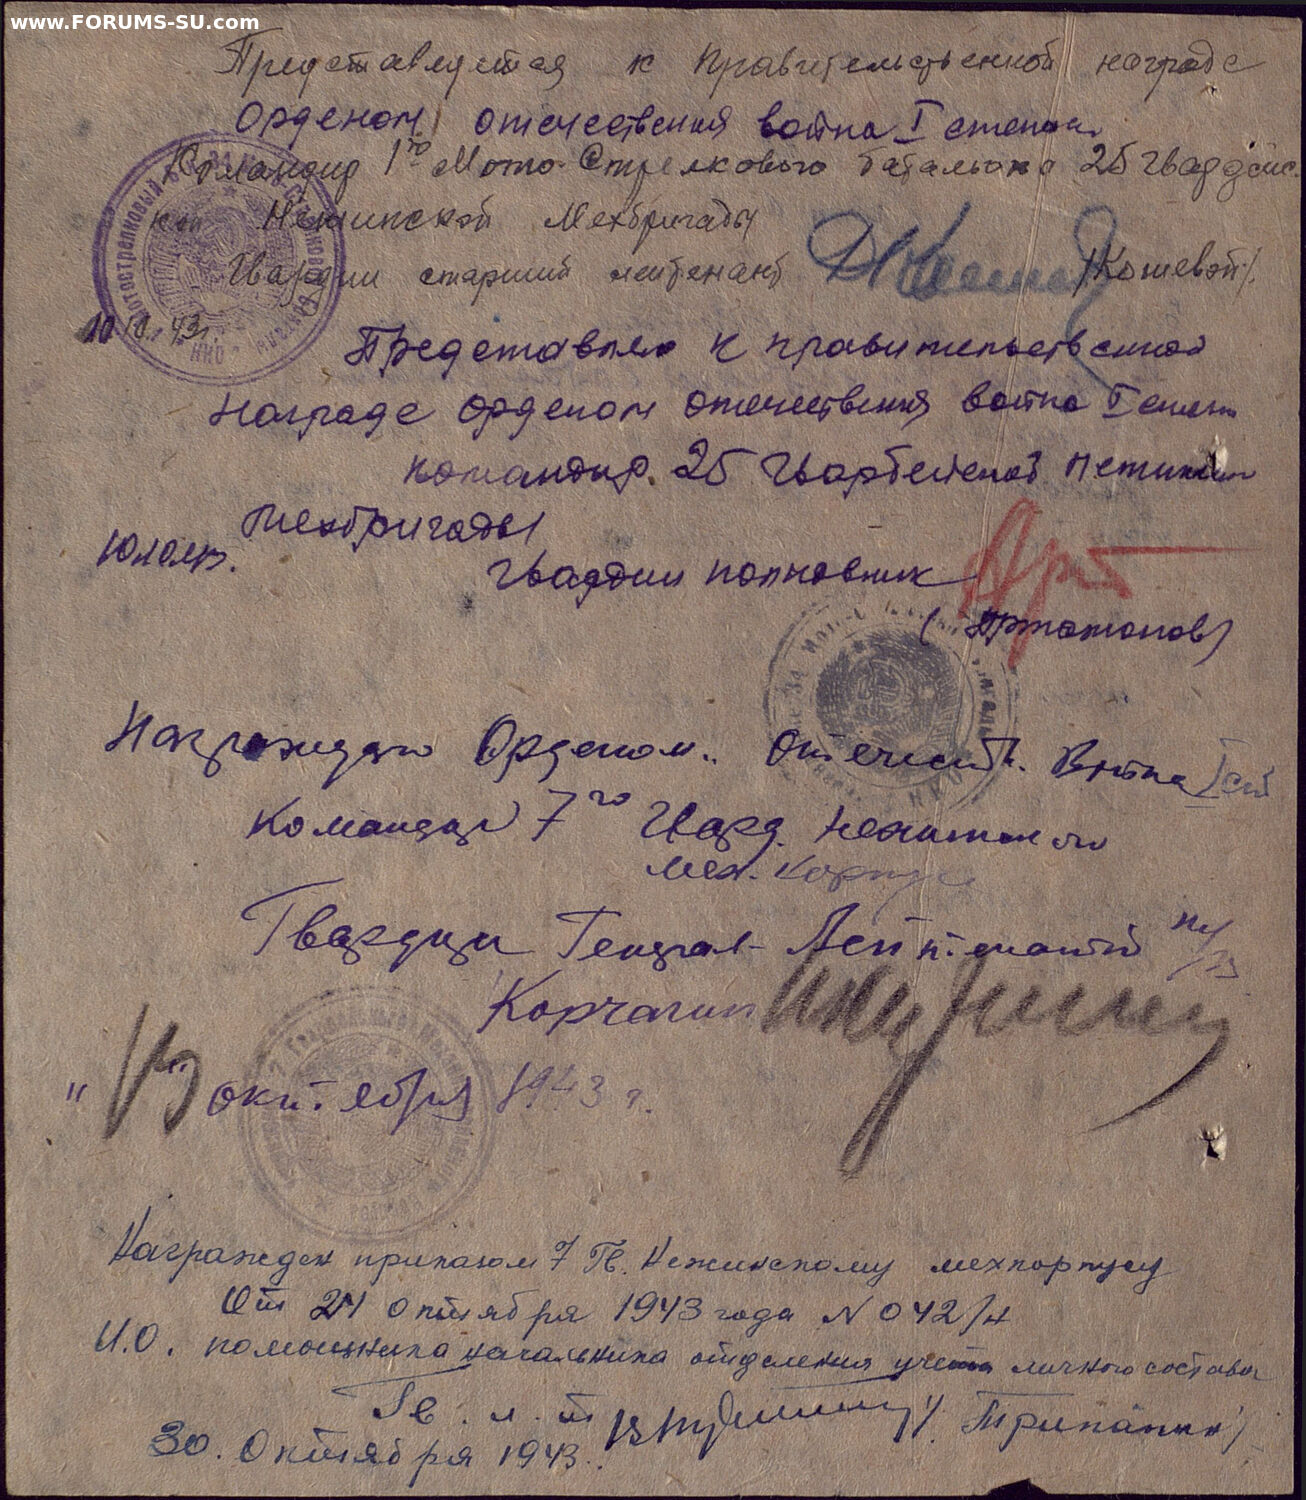 www.FORUMS-SU.com
Представляется к правительственной награде
Орденом отечественная война I степени
Командир 1го Мото-Стрелкового батальона 25 гвардейс
кой Нежинской Мехбригады
Гвардии старший лейтенант /Кошевой/.
10.10.43г.
Представляю к правительственной
награде орденом отечественная война I степени
командир 25 гвардейской Нежинской
мехбригады
гвардии полковник
(Артамонов)
Награждаю Орденом. Отечеств. Война I ст
Командир 7го Гвард. Нежинского
мех. корпуса
Гвардии Генерал-Лейтенант
Корчагин
" " октября 1943 г.
Награжден приказом 7 Гв. Нежинскому мехкорпусу
От 24 октября 1943 года N 042/н
И.О. помощника начальника отделения учета личного состава
Гв. л-т
30. Октября 1943.